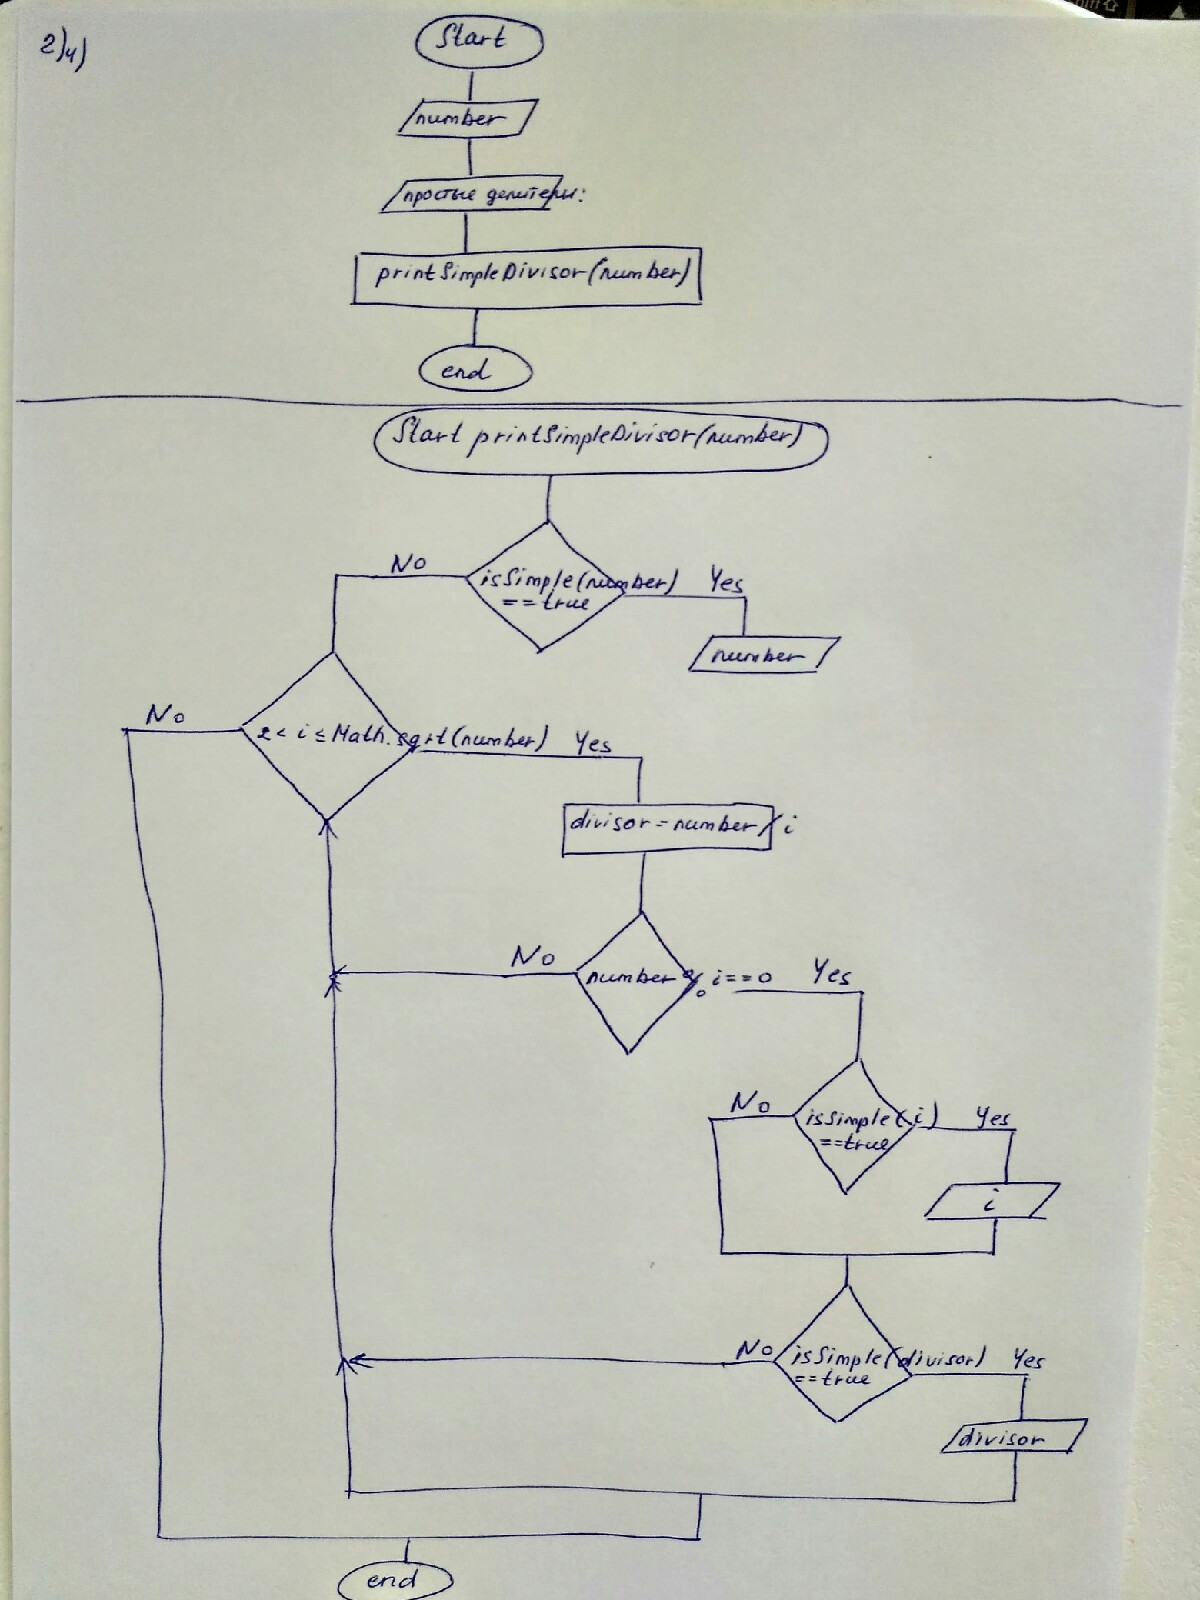 2)4)
Start
number
простые делители:
printSimpleDivisor(number)
end
Start printSimpleDivisor(number)
No
isSimple(number)
==true
Yes
number
No
2 < i ≤ Math.sqrt(number)
Yes
divisor = number / i
No
number % i==0
Yes
No
isSimple(i)
==true
Yes
i
No
isSimple(divisor)
==true
Yes
divisor
end